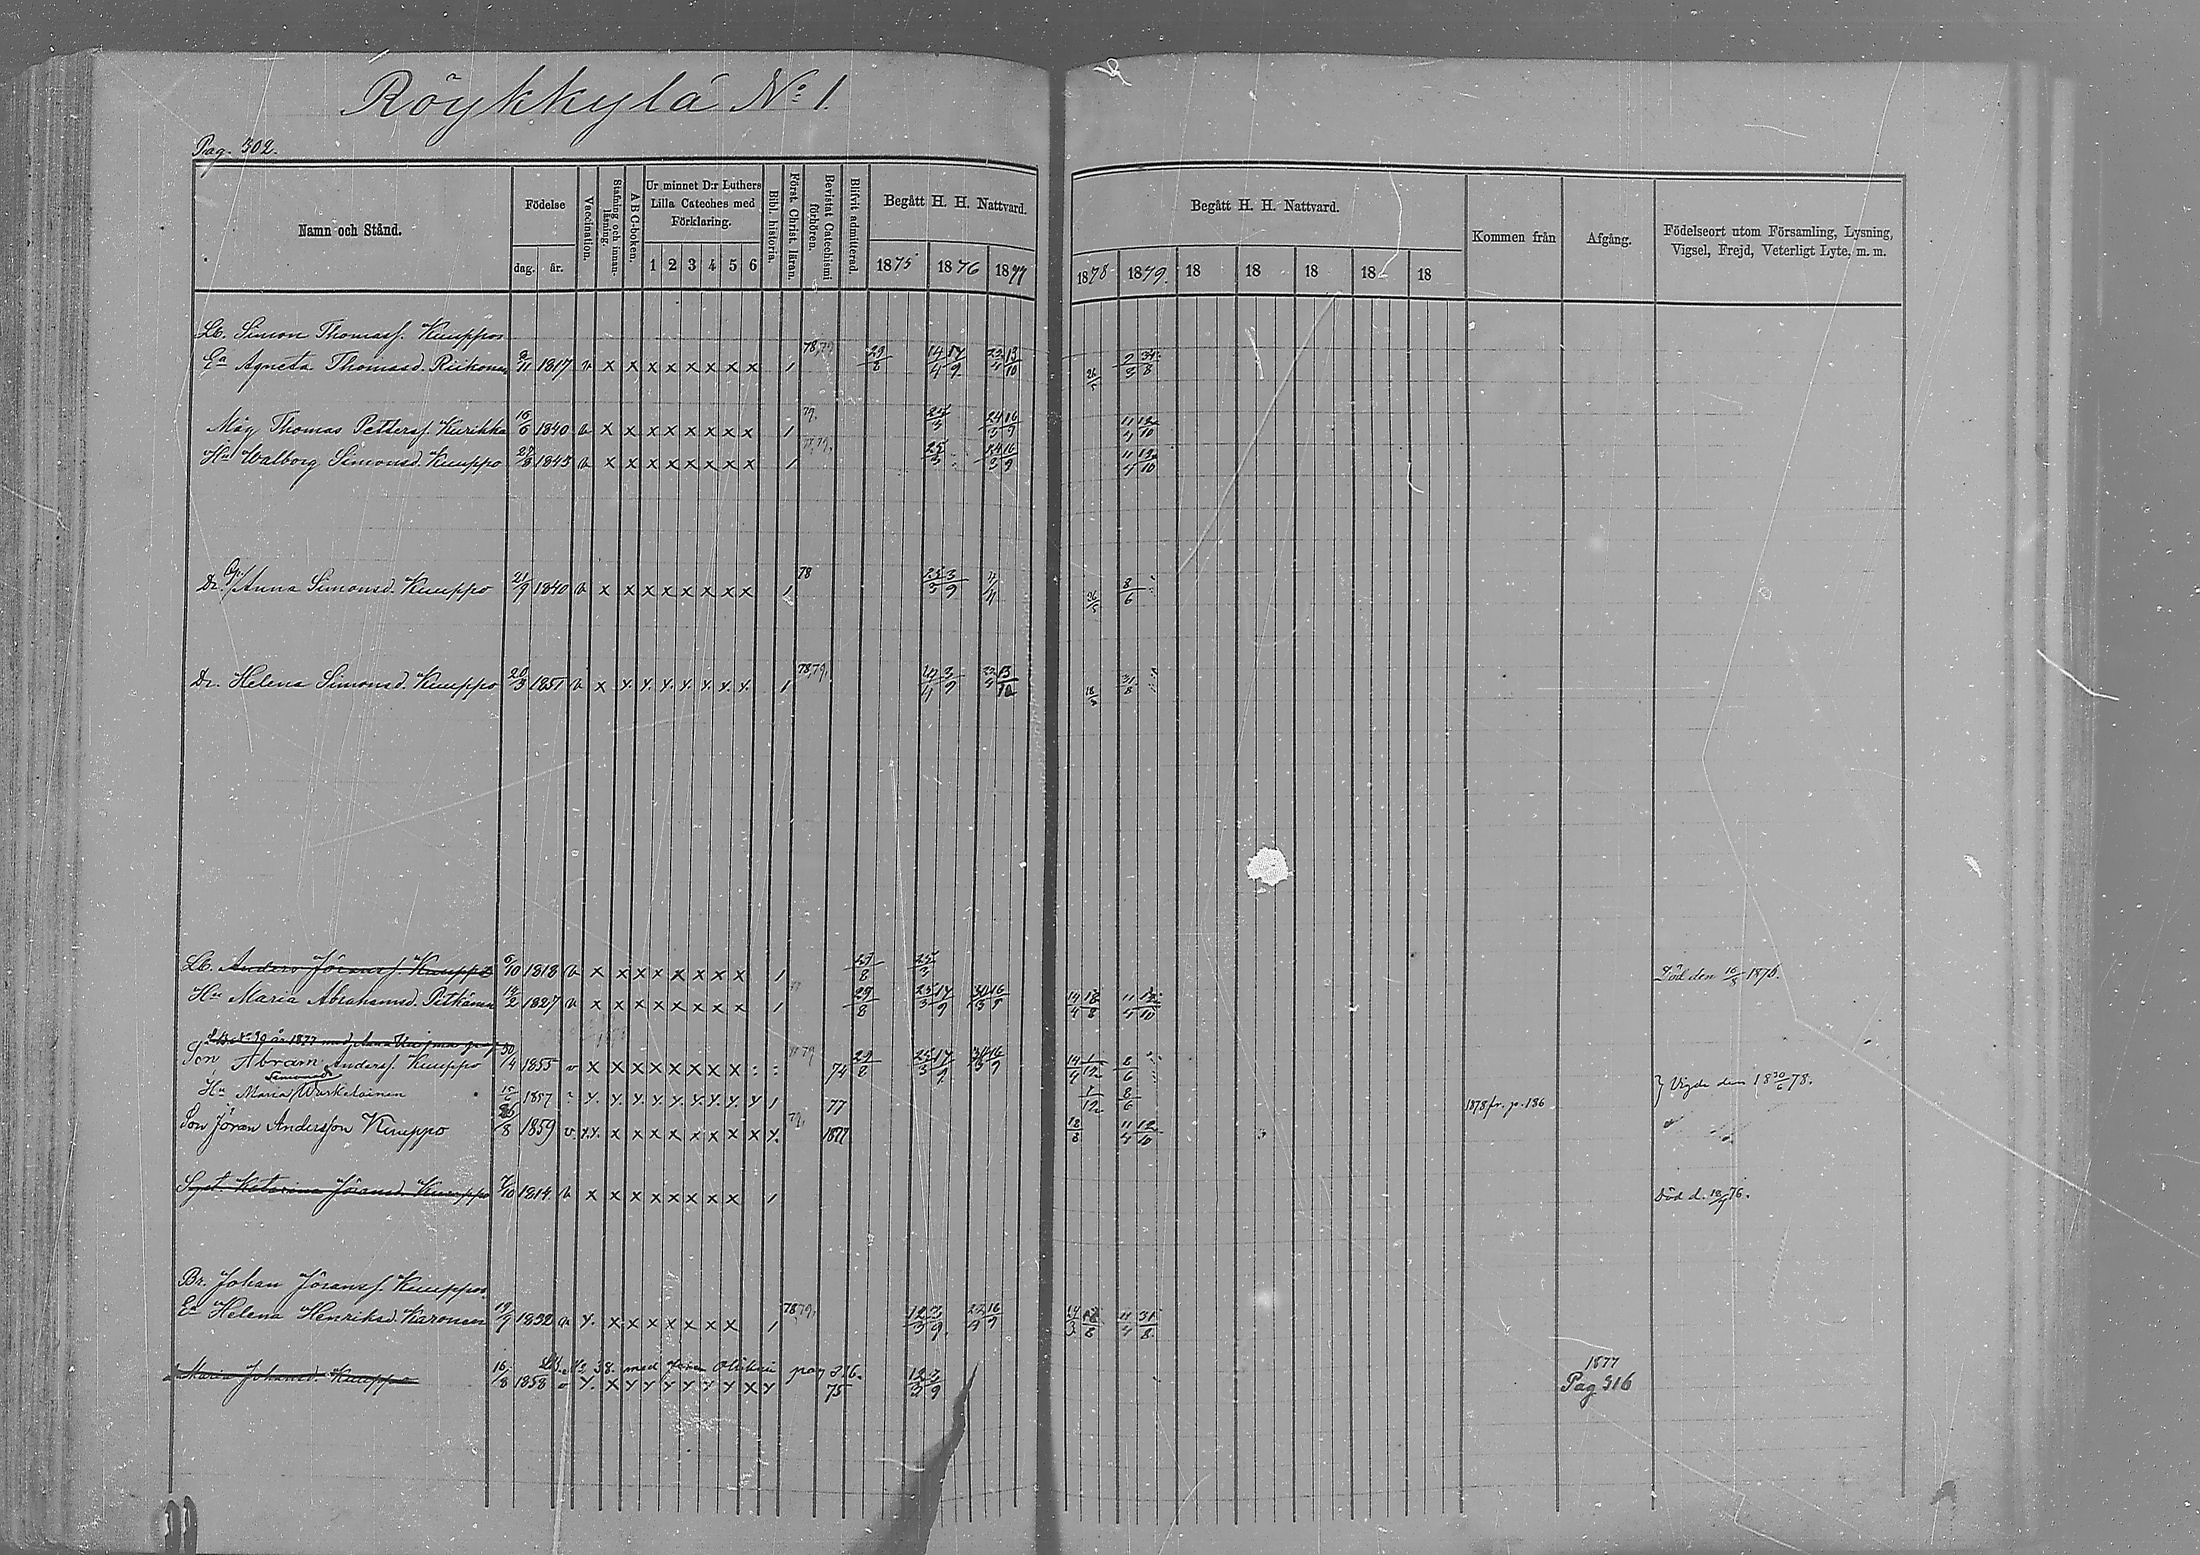 Röykkylä No 1.
Pag. 302.
Namn och Stånd. Födelse Vaccination. Stafning och innanläsning. A B C-boken. Ur minnet D:r Luthers Lilla Cateches med Förklaring. Bibl. historia. Först. Christ. läran. Bevistat Catechismi förhören. Blifvit admitterad. Begått H. H. Nattvard. Begått H. H. Nattvard. Kommen från Afgång. Födelseort utom Församling, Lysning, Vigsel, Frejd, Veterligt Lyte, m. m.
dag. år. 1 2 3 4 5 6 1875 1876 1877 1878 1879. 18 18 18 18 18
Lb. Simon Thomass. Kuuppo
Ea Agneta Thomasd. Riikonen 1817 v x x x x x x x x 1 78,79 29/8 14/4 17/9 13/10 26/5 2/3 31/8
Måg Thomas Petterss. Kurikka 16/6 1840 v x x x x x x x x 1 79. 25/3 24/3 16/9 11/4 12/10
Hu Walborg Simonsd. Kuuppo 27/8 1845 v x x x x x x x x 1 25/3 24/3 16/9 11/4 12/10
Dr. Anna Simonsd. Kuuppo 21/9 1840 v x x x x x x x x 1 78 25/3 3/9 4/4 26/5 8/6
Dr. Helena Simonsd. Kuuppo 20/3 1851 v x x x x x x x x 1 78,79. 3/9 13/10 18/5 31/8
Lb. Anders Jöranss. Kuuppo 6/10 1818 v x x x x x x x x 1 29/8 25/3 Död den 16/5 1876.
Hu Maria Abrahamsd. Pitkänen 1827 v x x x x x x x x 1 29/8 25/3 17/9 31/3 16/9 14/4 18/8 11/4 12/10
Son Abram Anderss. Kuuppo 30/4 1855 v x x x x x x x x 79 74 29/8 25/3 17/9 31/3 16/9 14/4 1/12 8/6
Simonsd
Hu Maria Wurkelainen 15/6 1857 x x x x x x x x 1 77 1/12 8/6 1878 fr. p. 186 } Vigde den 18 30/6 78.
Son Jöran Andersson Kuuppo 26/8 1859 v x x x x x x x x x 79 1877 18/8 11/4 12/10
Syst. Katarina Jöransd. Kuuppo 7/10 1814 v x x x x x x x x 1 Död d. 76.
Br. Johan Jöranss. Kuuppo
Ea Helena Henriksd. Karonen 19/9 1832 v x x x x x x x x 1 78 79. 12/3 3/9 16/9 14/3 18/8 11/4 31/8
No 38. med pag 316.
Maria Johansd. Kuuppo 16/8 1858 v x x x x x x x x x 75 12/3 3/9 1877 Pag 316